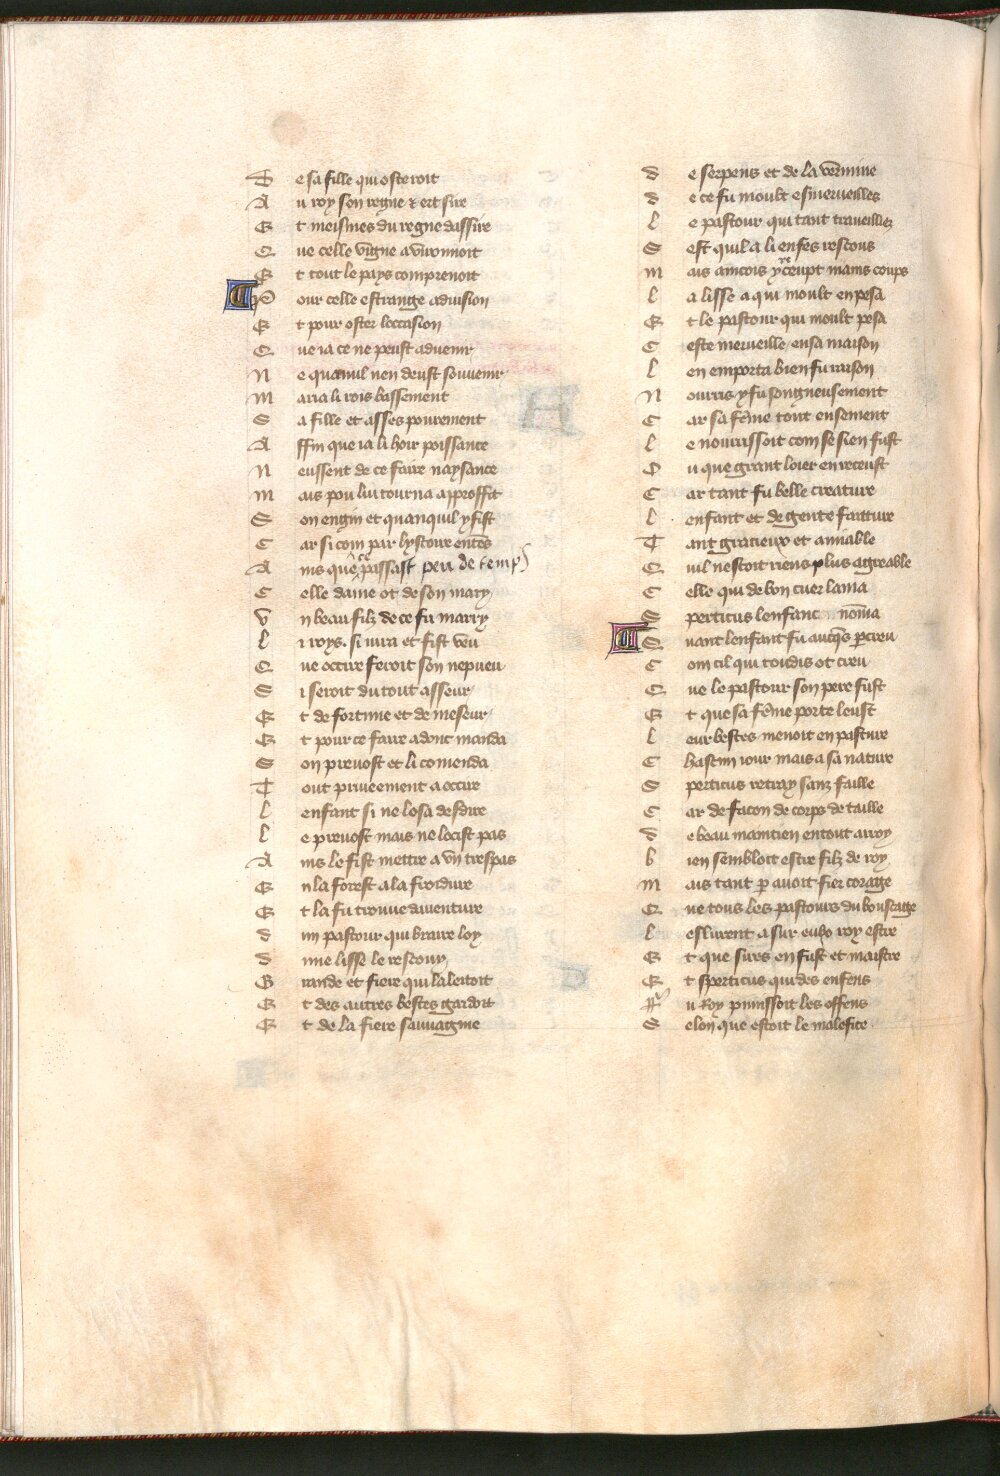 De sa fille qui osteroit
Au roy son regne & ert sire
Et meismes du regne dassire
Que celle vigne auironnoit
Et tout le pays comprenoit
Pour celle estrange aduision
Et pour oster loccasion
Que ia ce ne peust aduenir
Ne quanuil nen deust souuenir
Maria li rois bassement
Sa fille et asses pourement
Affin que ia li hoir poissance
Neussent de ce faire naysance
Mais pou lui tourna a proffit
Son engin et quanquil y fist
Car si com par lystoire entẽs
Ains que ce passast peu de temps
Celle dame ot de son mary
Vn beau filz de ce fu marry
Li roys. si iura et fist veu
Que occire feroit son nepueu
Si seroit du tout asseur
Et de fortune et de meseur
Et pour ce faire adonc manda
Son preuost et li comenda
Tout priueement a occire
Lenfant si ne losa desdire
Le preuost mais ne locist pas
Ains le fist mettre a vn trespas
En la forest a la froidure
Et la fu trouue dauenture
dun pastour qui braire loy
dune lisse le rescouy
Grande et fiere qui laleitoit
Et des autres bestes gardoit
Et de la fiere sauuagine
de serpens et de la vermine
de ce fu moult esmerueillez
Le pastour qui tant traueillez
Sest quil a li enfes rescous
Mais aincois y receupt mains coups
La lisse a qui moult en pesa
Et le pastour qui moult pesa
Ceste merueille en sa maison
Len emporta bien fu raison
Nourris y fu songneusement
Car sa fẽme tout ensement
Le nourrissoit com se sien fust
Ou que grant loier en receust
Car tant fu belle creature
Lenfant et de gente faiture
Tant gracieux et amiable
Quil nestoit riens plus agreable
Celle qui de bon cuer lama
Sperticus lenfant nõma
Quant lenfant fu auq̃s p̱creu
Com cil qui toudis ot creu
Que le pastour son pere fust
Et que sa fẽme porte leust
Leur bestes menoit en pasture
Chascun iour mais a sa nature
Sperticus retray sanz faille
Car de facon de corps de taille
de beau maintien en tout arroy
bien sembloit estre filz de roy
Mais tant p̱ auoit fier corage
Que tous les pastours du bouscage
Leslirent a sur eulx roy estre
Et que sires en fust et maistre
Et sperticus qui des enfens
Fu Roy punissoit les offens
Selon que estoit le malefice